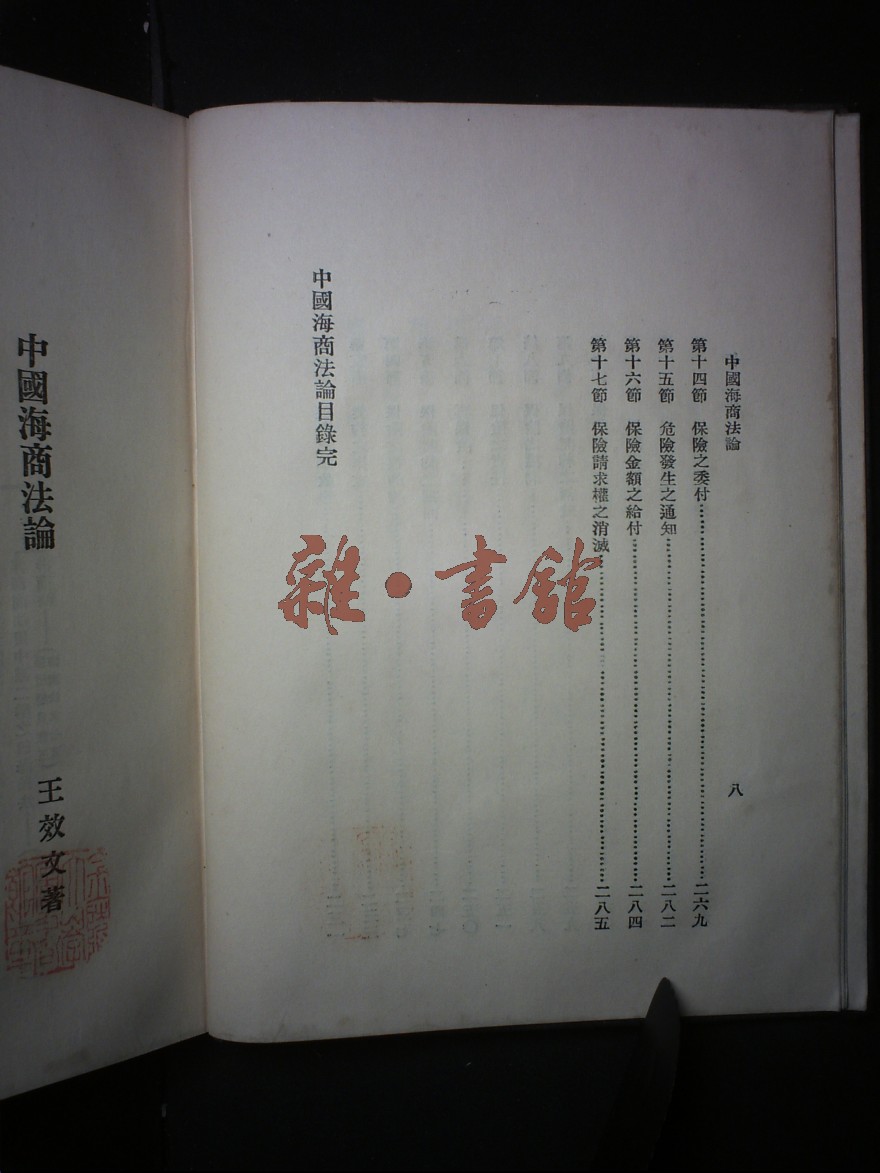 中國海商法論
八
第十四節 保險之委付……二六九
第十五節 危險發生之通知……二八二
第十六節 保險金額之給付……二八四
第十七節 保險請求權之消滅……二八五
中國海商法論目錄完
雜·書館
中國海商法論
王效文著